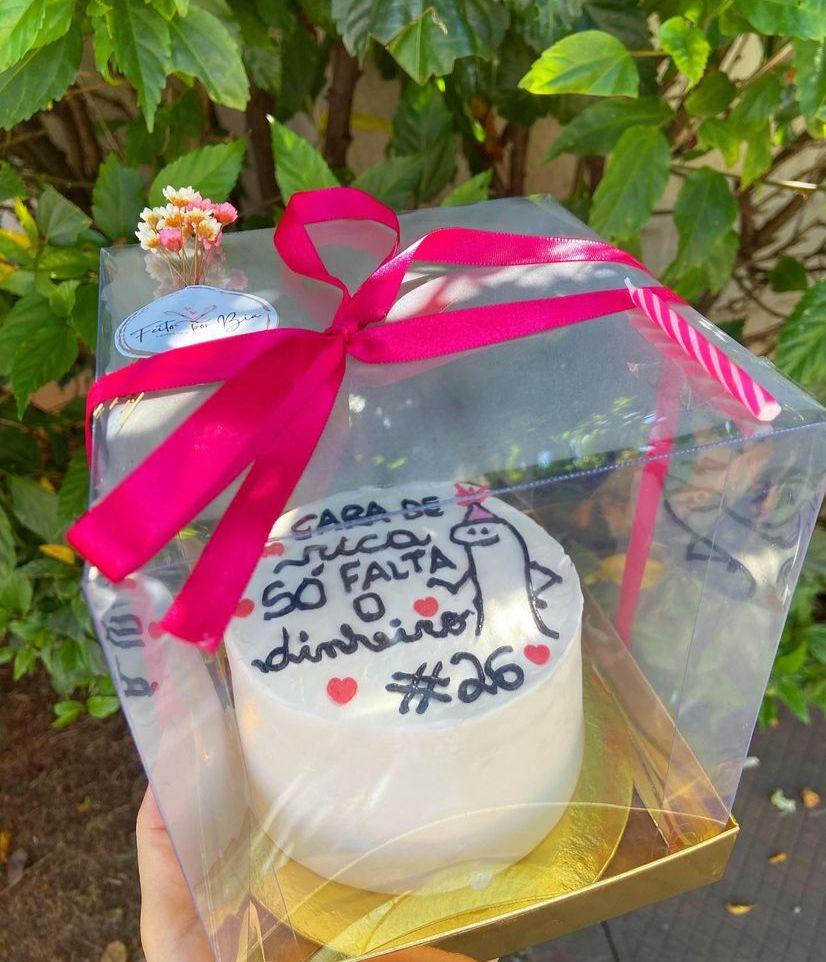 Feitos por Bia
CARA DE
rica
SÓ FALTA
O
dinheiro
#26